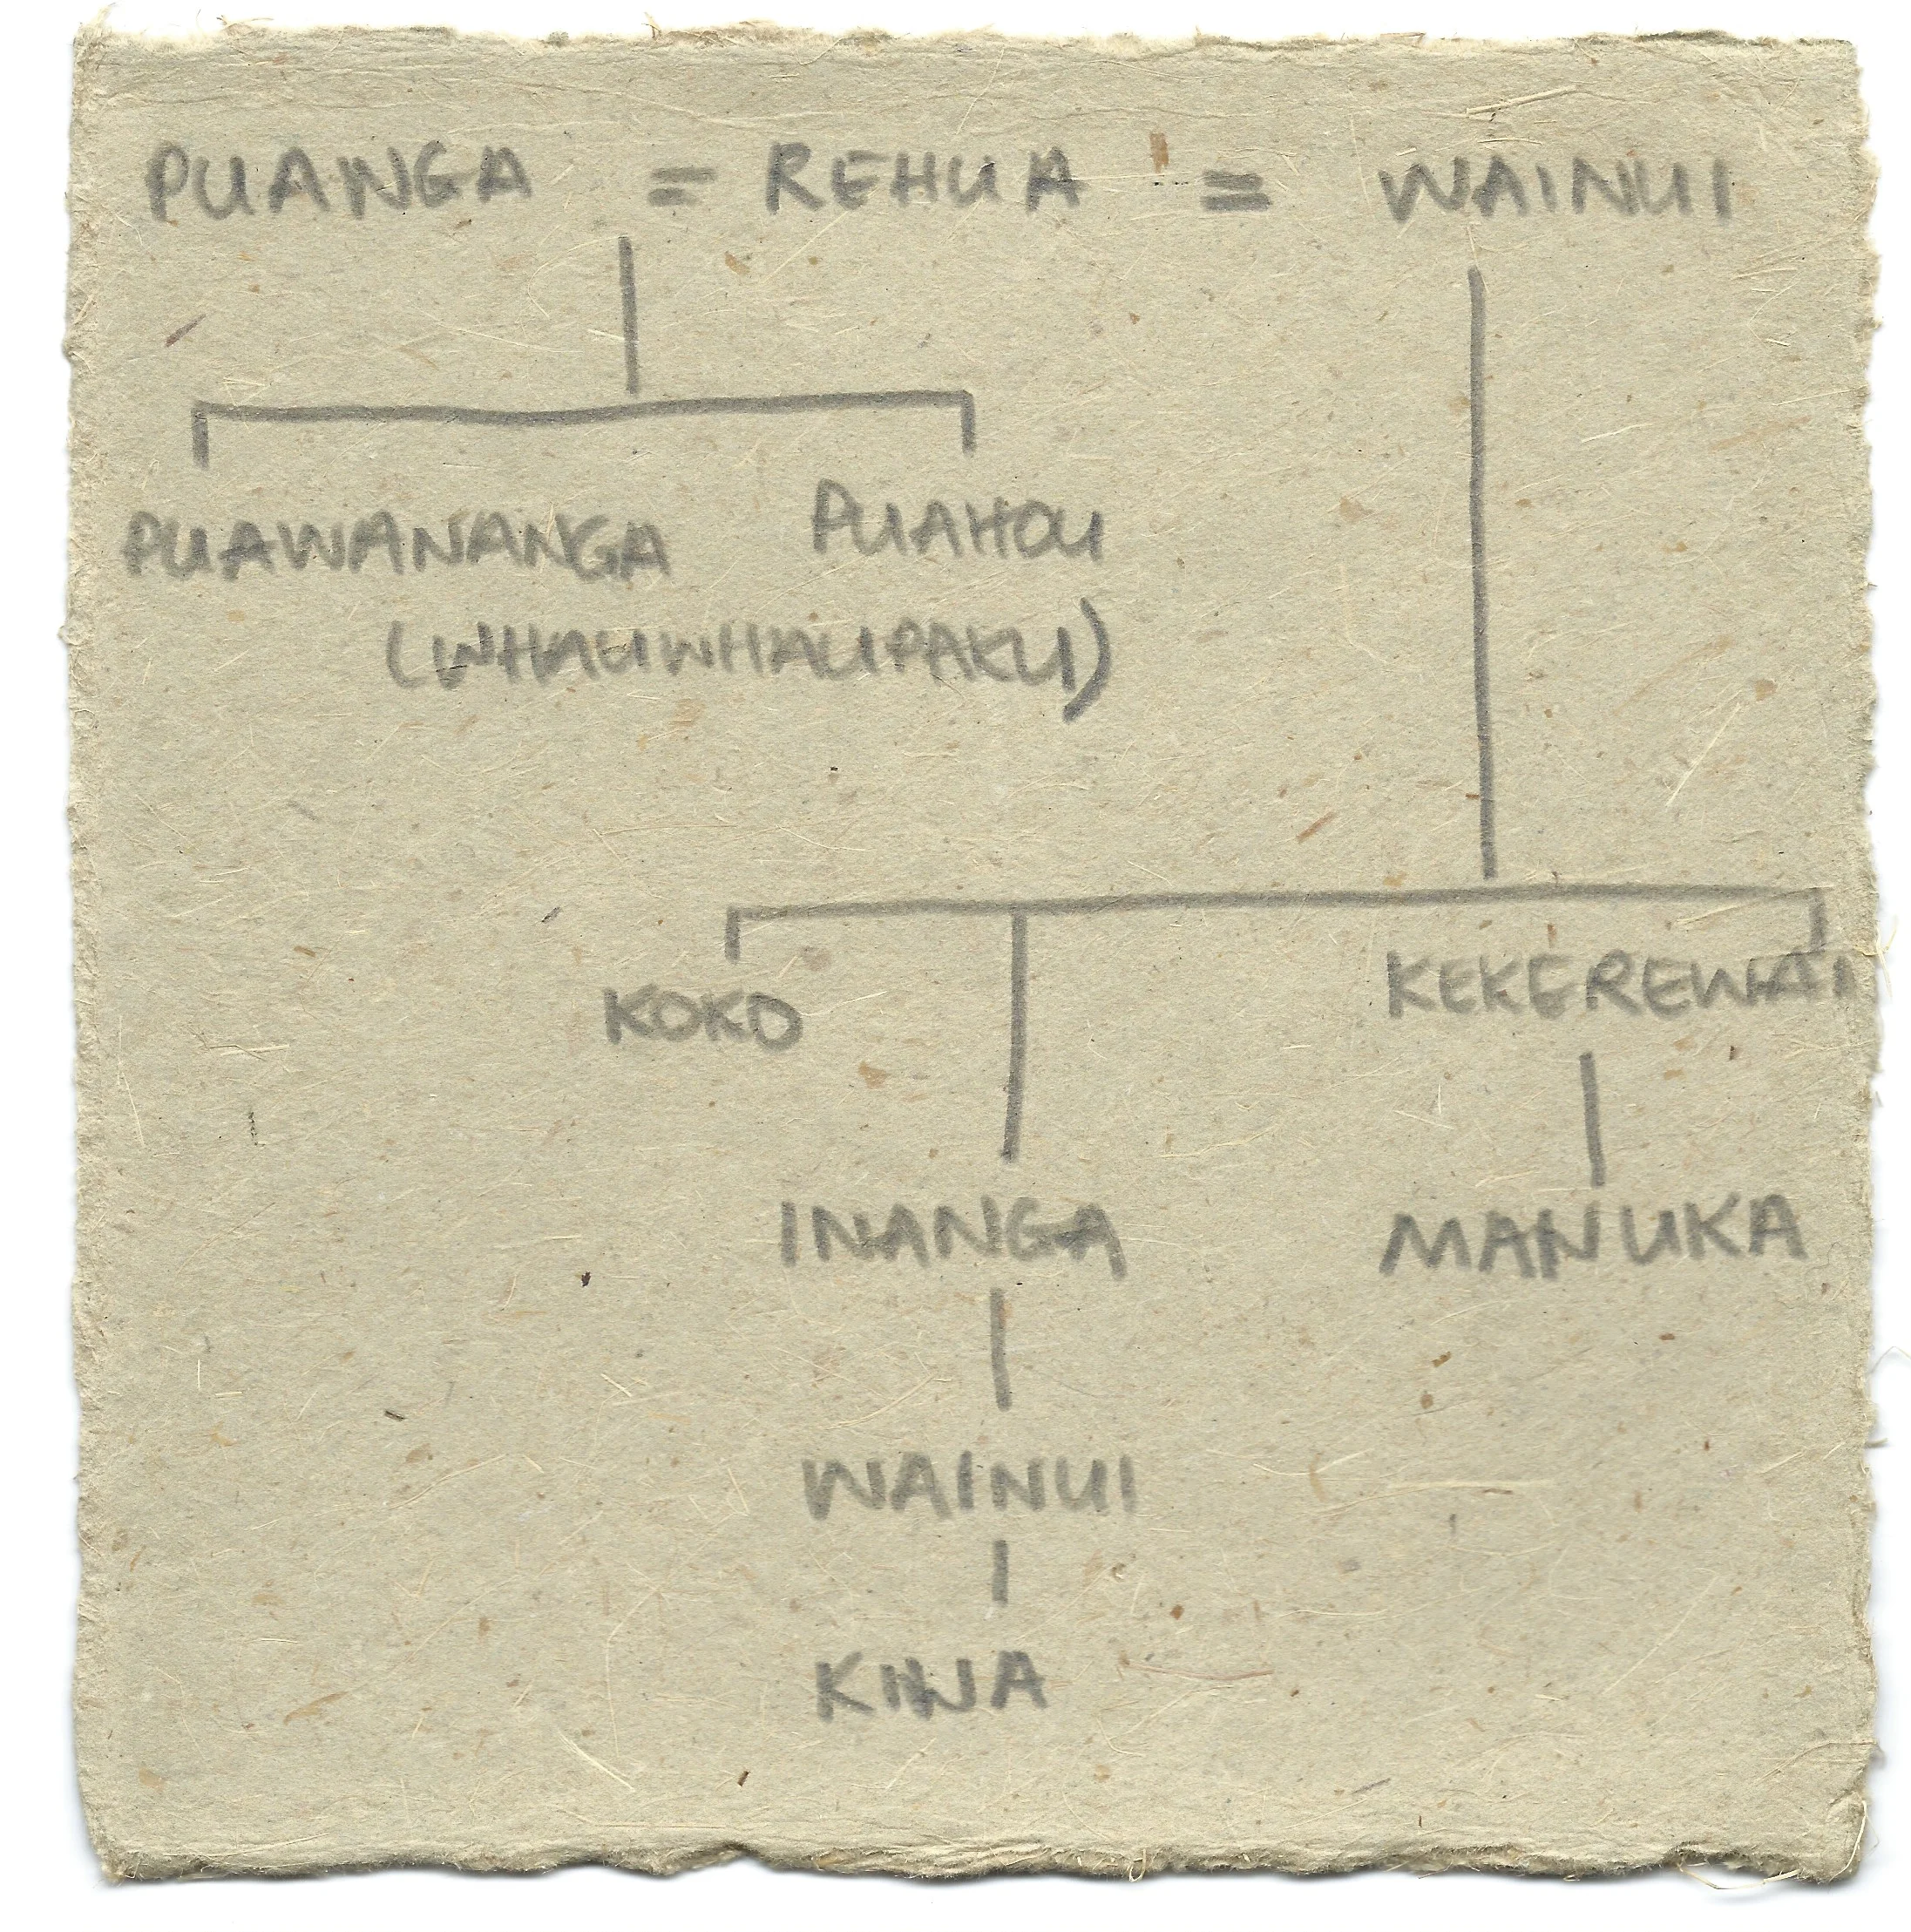 PUANGA = REHUA = WAINUI
PUAWANANGA PUAHOU
(WHAUWHAUPAKU)
KOKO KEKEREWAI
INANGA MANUKA
WAINUI
KINA